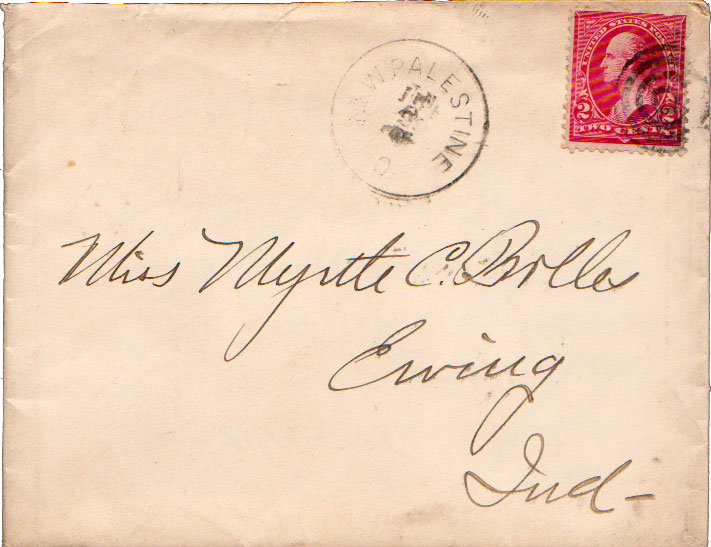 NEW PALESTINE
O
UNITED STATES POSTAGE
2 2
TWO CENTS
Miss Myrtle C. Bolles
Ewing
Ind-